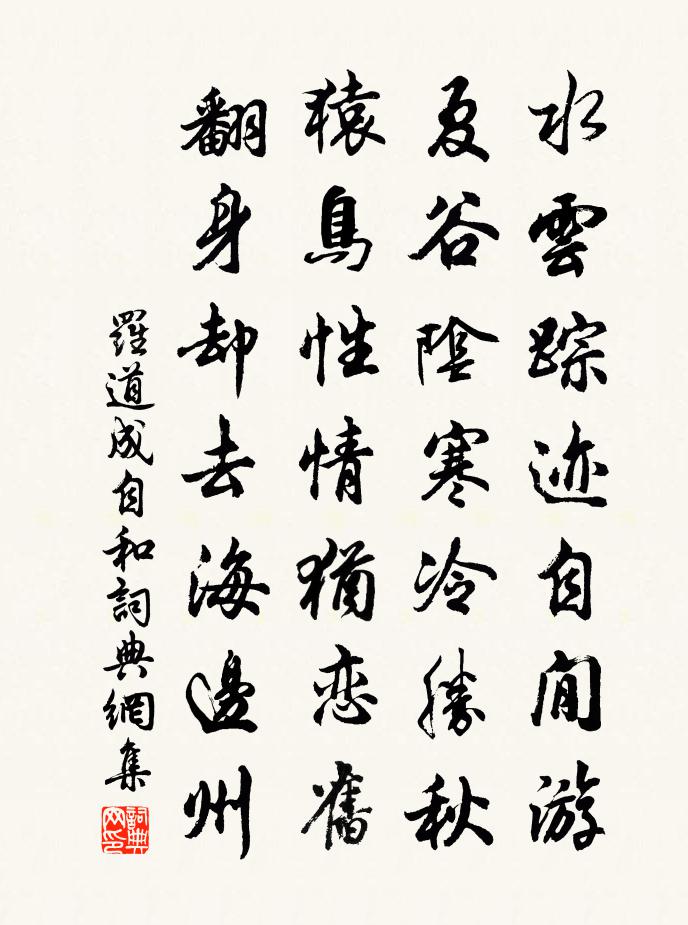 水雲踪迹自闲游
夏谷陰寒冷勝秋
猿鳥性情猶恋舊
翻身却去海邊州
羅道成自和詞典網集
詞典网印